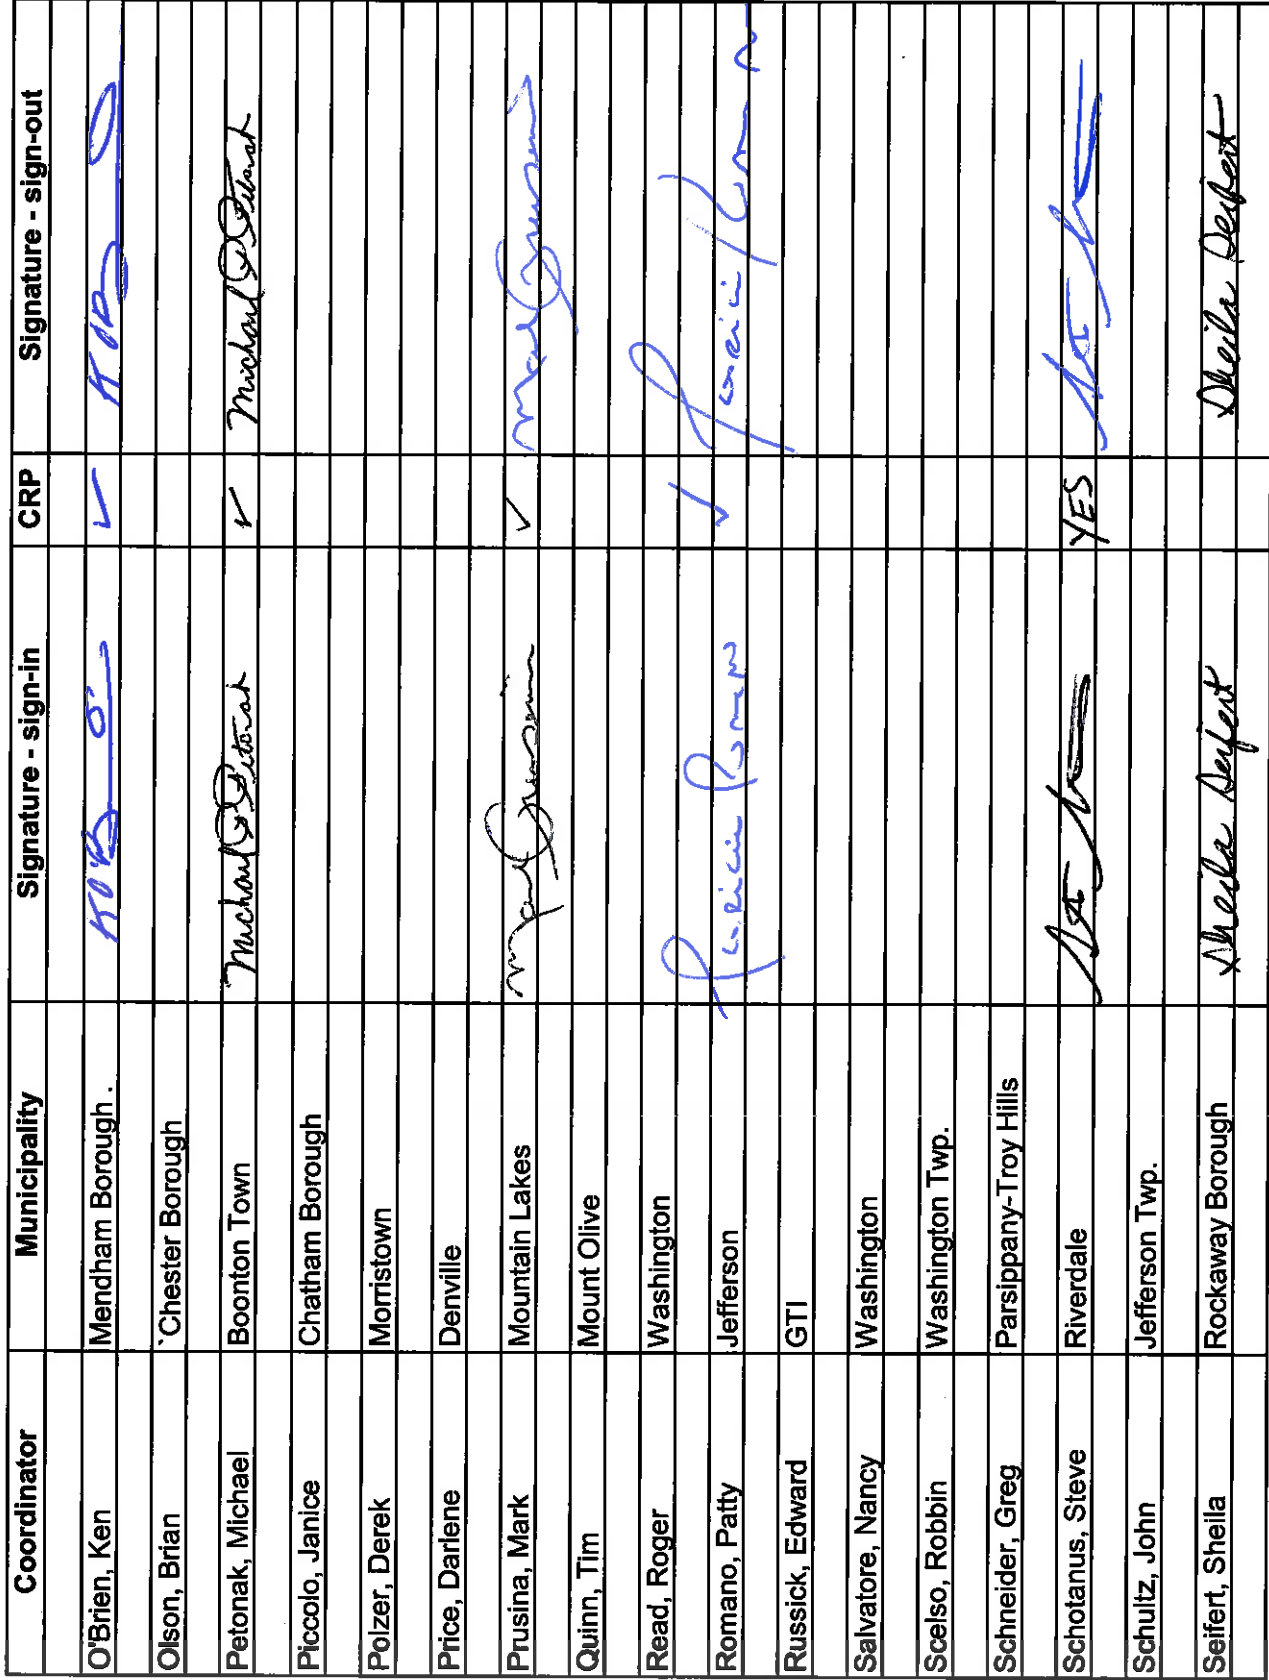 Coordinator Municipality Signature - sign-in CRP Signature - sign-out
O'Brien, Ken Mendham Borough . KOB ✓ KOB
Olson, Brian `Chester Borough
Petonak, Michael Boonton Town Michael P Petonak ✓ Michael P Petonak
Piccolo, Janice Chatham Borough
Polzer, Derek Morristown
Price, Darlene Denville
Prusina, Mark Mountain Lakes Mark Prusina ✓ Mark Prusina
Quinn, Tim Mount Olive
Read, Roger Washington
Romano, Patty Jefferson Patricia Romano ✓ Patricia Romano
Russick, Edward GTI
Salvatore, Nancy Washington
Scelso, Robbin Washington Twp.
Schneider, Greg Parsippany-Troy Hills
Schotanus, Steve Riverdale YES
Schultz, John Jefferson Twp.
Seifert, Sheila Rockaway Borough Sheila Seifert Sheila Seifert